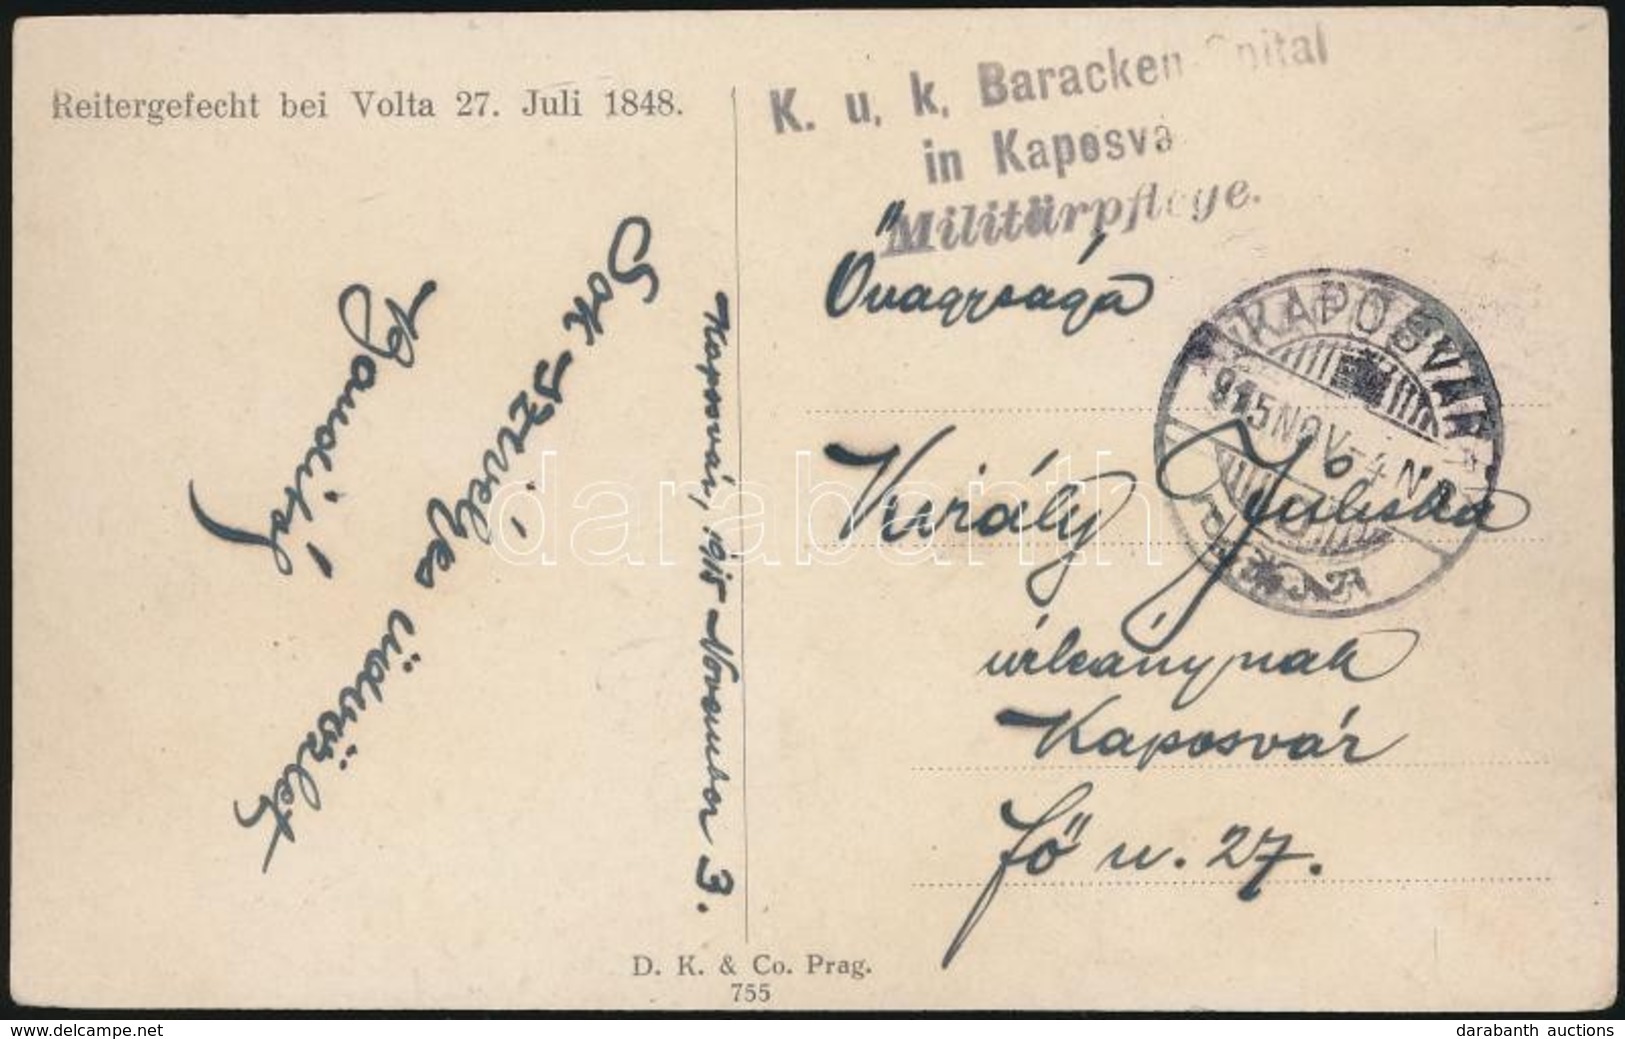 Reitergefecht bei Volta 27. Juli 1848.
K. u. k. Baracken-Spital
in Kaposvá
Militärpflege.
Sok szívélyes üdvözlet
Kaposvár, 1915 November 3.
Őnagysága
Király Juliska
úrleánynak
Kaposvár
fő u. 27.
KAPOSVÁR
915 NOV -4 N
D. K. & Co. Prag.
755
darabanth
www.delcampe.net
darabanth auctions